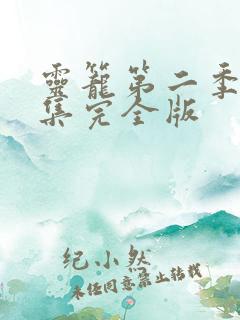 靈籠第二季
集完全版
纪小然
未任同意禁止转载